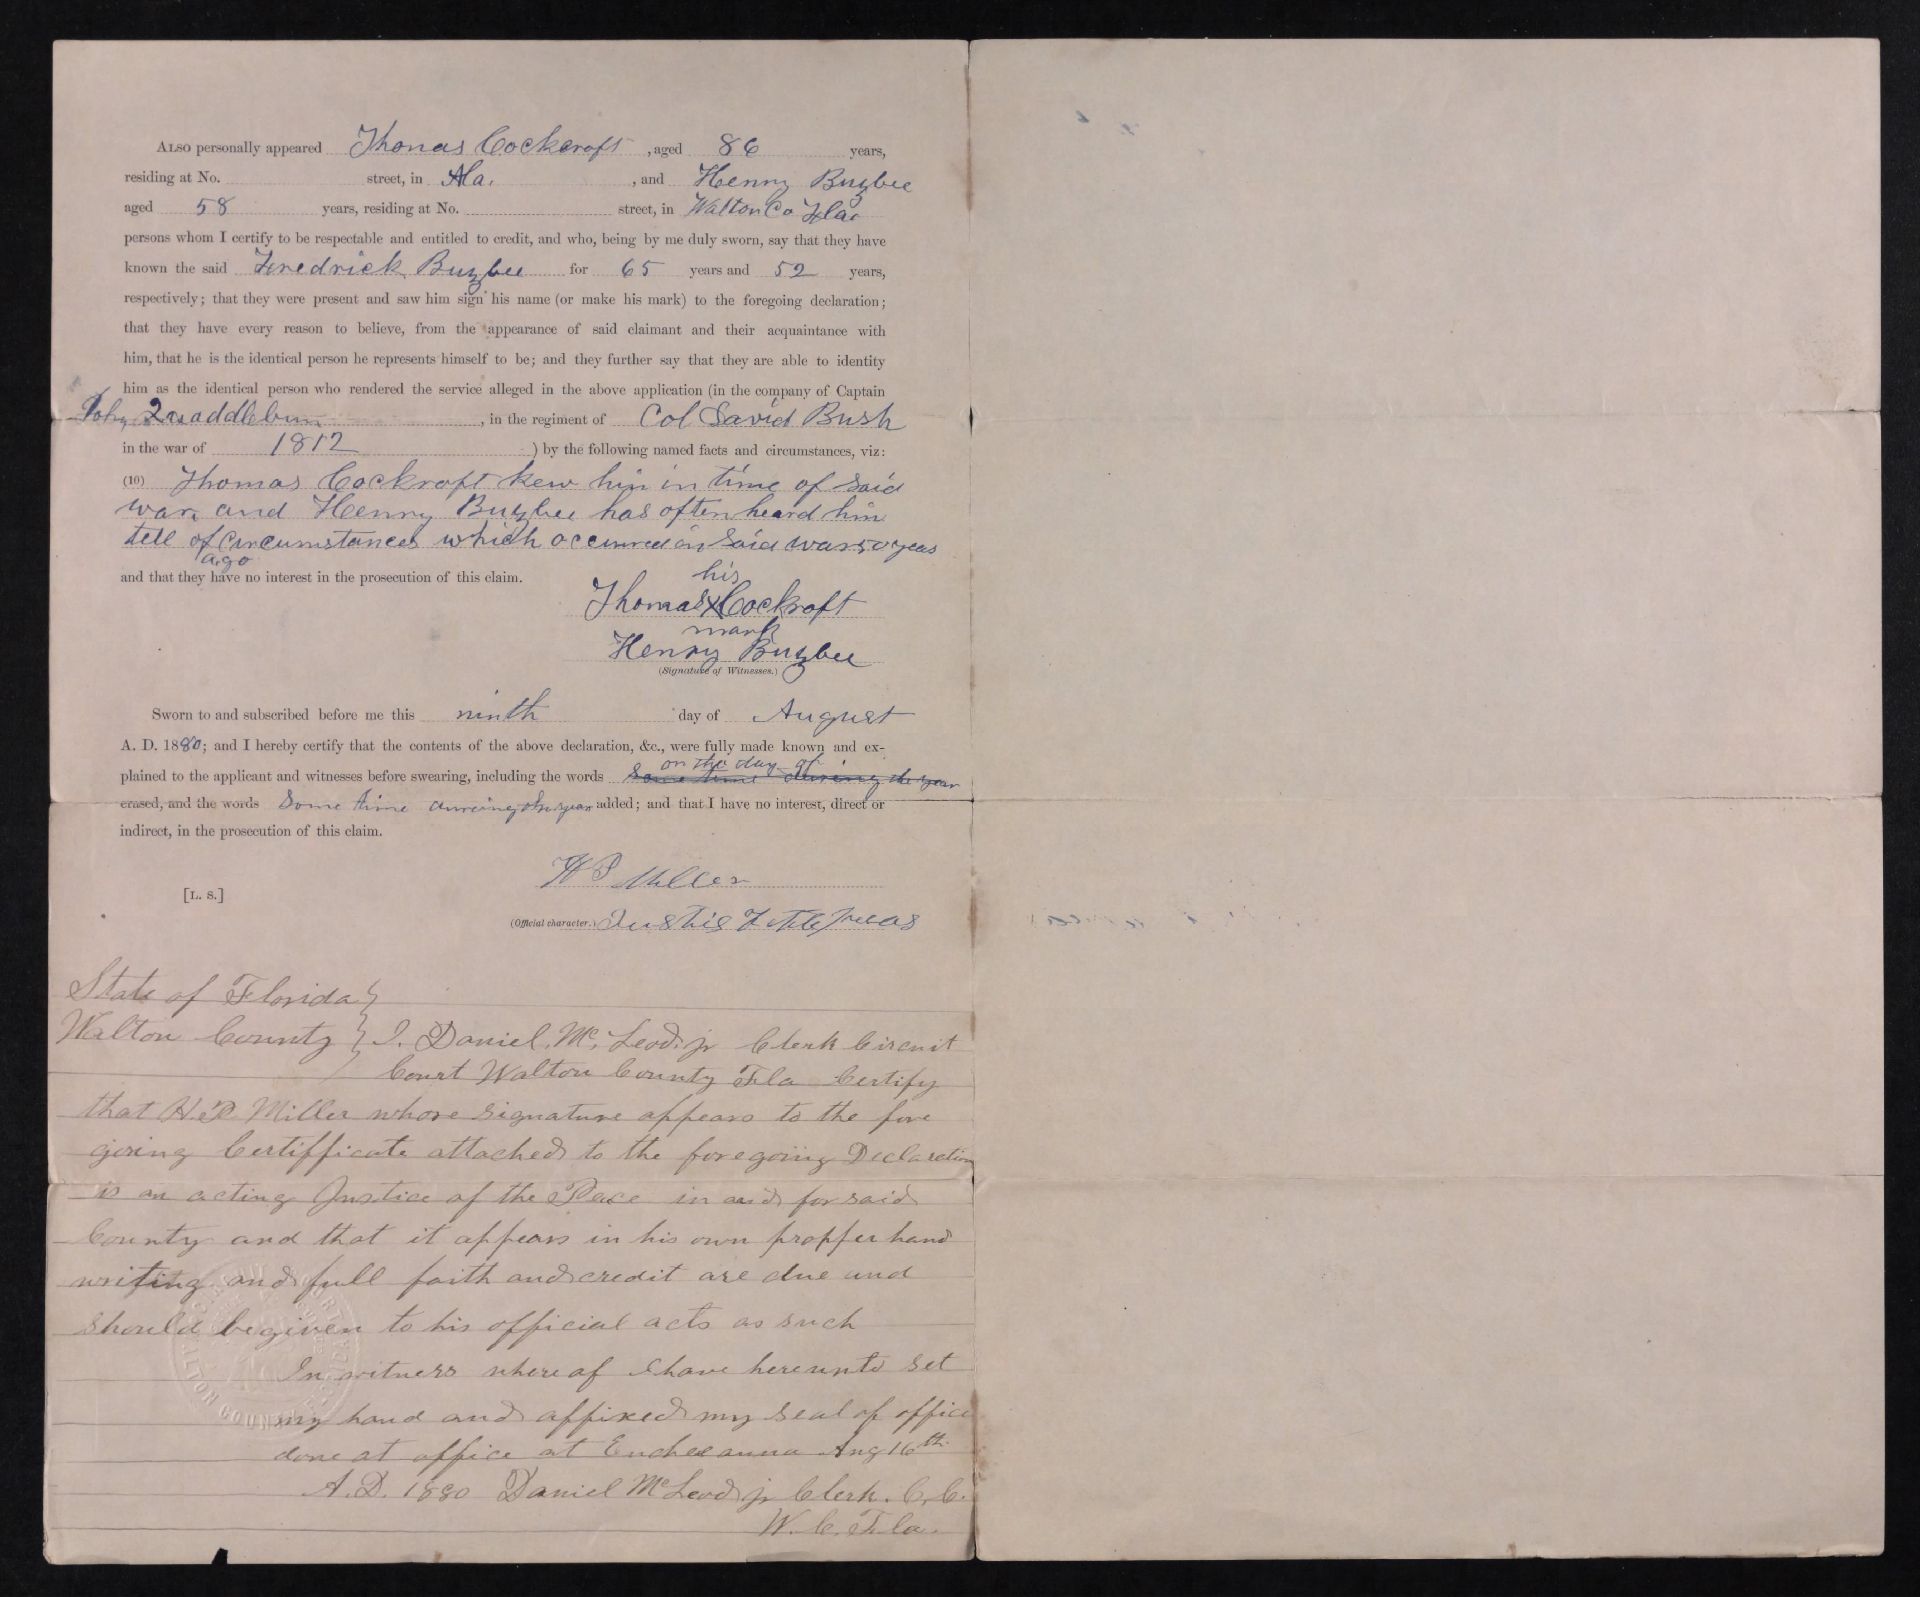 ALSO personally appeared Thomas Cockcroft, aged 86 years,
residing at No. street, in Ala., and Henry Buzbee
aged 58 years, residing at No. street, in Walton Co Fla
persons whom I certify to be respectable and entitled to credit, and who, being by me duly sworn, say that they have
known the said Fredrick Buzbee for 65 years and 52 years,
respectively; that they were present and saw him sign his name (or make his mark) to the foregoing declaration;
that they have every reason to believe, from the appearance of said claimant and their acquaintance with
him, that he is the identical person he represents himself to be; and they further say that they are able to identity
him as the identical person who rendered the service alleged in the above application (in the company of Captain
John Quaddlebum, in the regiment of Col David Bush
in the war of 1812) by the following named facts and circumstances, viz:
(10) Thomas Cockroft kew him in time of said
war, and Henry Buzbee has often heard him
tell of circumstances which occurred in said war 50 yeas
ago
and that they have no interest in the prosecution of this claim.
his
Thomas X Cockroft
mark
Henry Buzbee
(Signature of Witnesses.)
Sworn to and subscribed before me this ninth day of August
A. D. 1880; and I hereby certify that the contents of the above declaration, &c., were fully made known and ex-
on the day of
plained to the applicant and witnesses before swearing, including the words some time during the year
erased, and the words some time during the year added; and that I have no interest, direct or
indirect, in the prosecution of this claim.
H P Miller
[L. S.]
(Official character.) Justis of the peeas
State of Florida }
Walton County } I. Daniel. Mc. Leod. jr Clerk Circuit
Court Walton County Fla Certify
that H. P Miller whose signature appears to the fore
going Certifficate attached to the foregoing Declaration
is an acting Justice of the Peace in and for said
County and that it appears in his own propper hand
writing and full faith and credit are due and
should be given to his official acts as such
In witness where of I have hereunto set
my hand and affixed my seal of office
done at office at Eucheeanna Aug 16th
A. D. 1880 Daniel McLeod jr Clerk. C. C.
W. C. Fla.